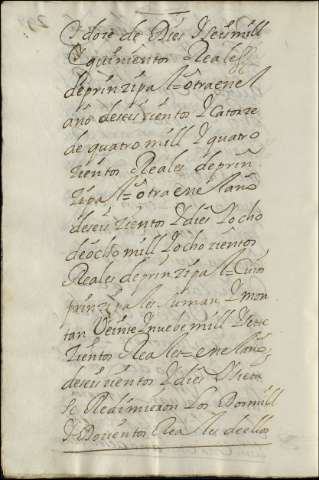 Y dore de Dies Y seis mill
Y quinientos Reales
de prinzipal = otra en el
año de seis zientos Y Catorze
de quatro mill Y quatro
zientos Reales de prin
zipal = otra en el año
de seis zientos Y dies Y ocho
de ocho mill Y ocho zientos
Reales de prinzipal = Cuios
prinzipales suman Y mon
tan Veinte Y nuebe mill Y sete
zientos Reales = en el año
de seis zientos Y dies Y siete
se Redimieron Los Dos mill
Y Dozientos Reales de ellos